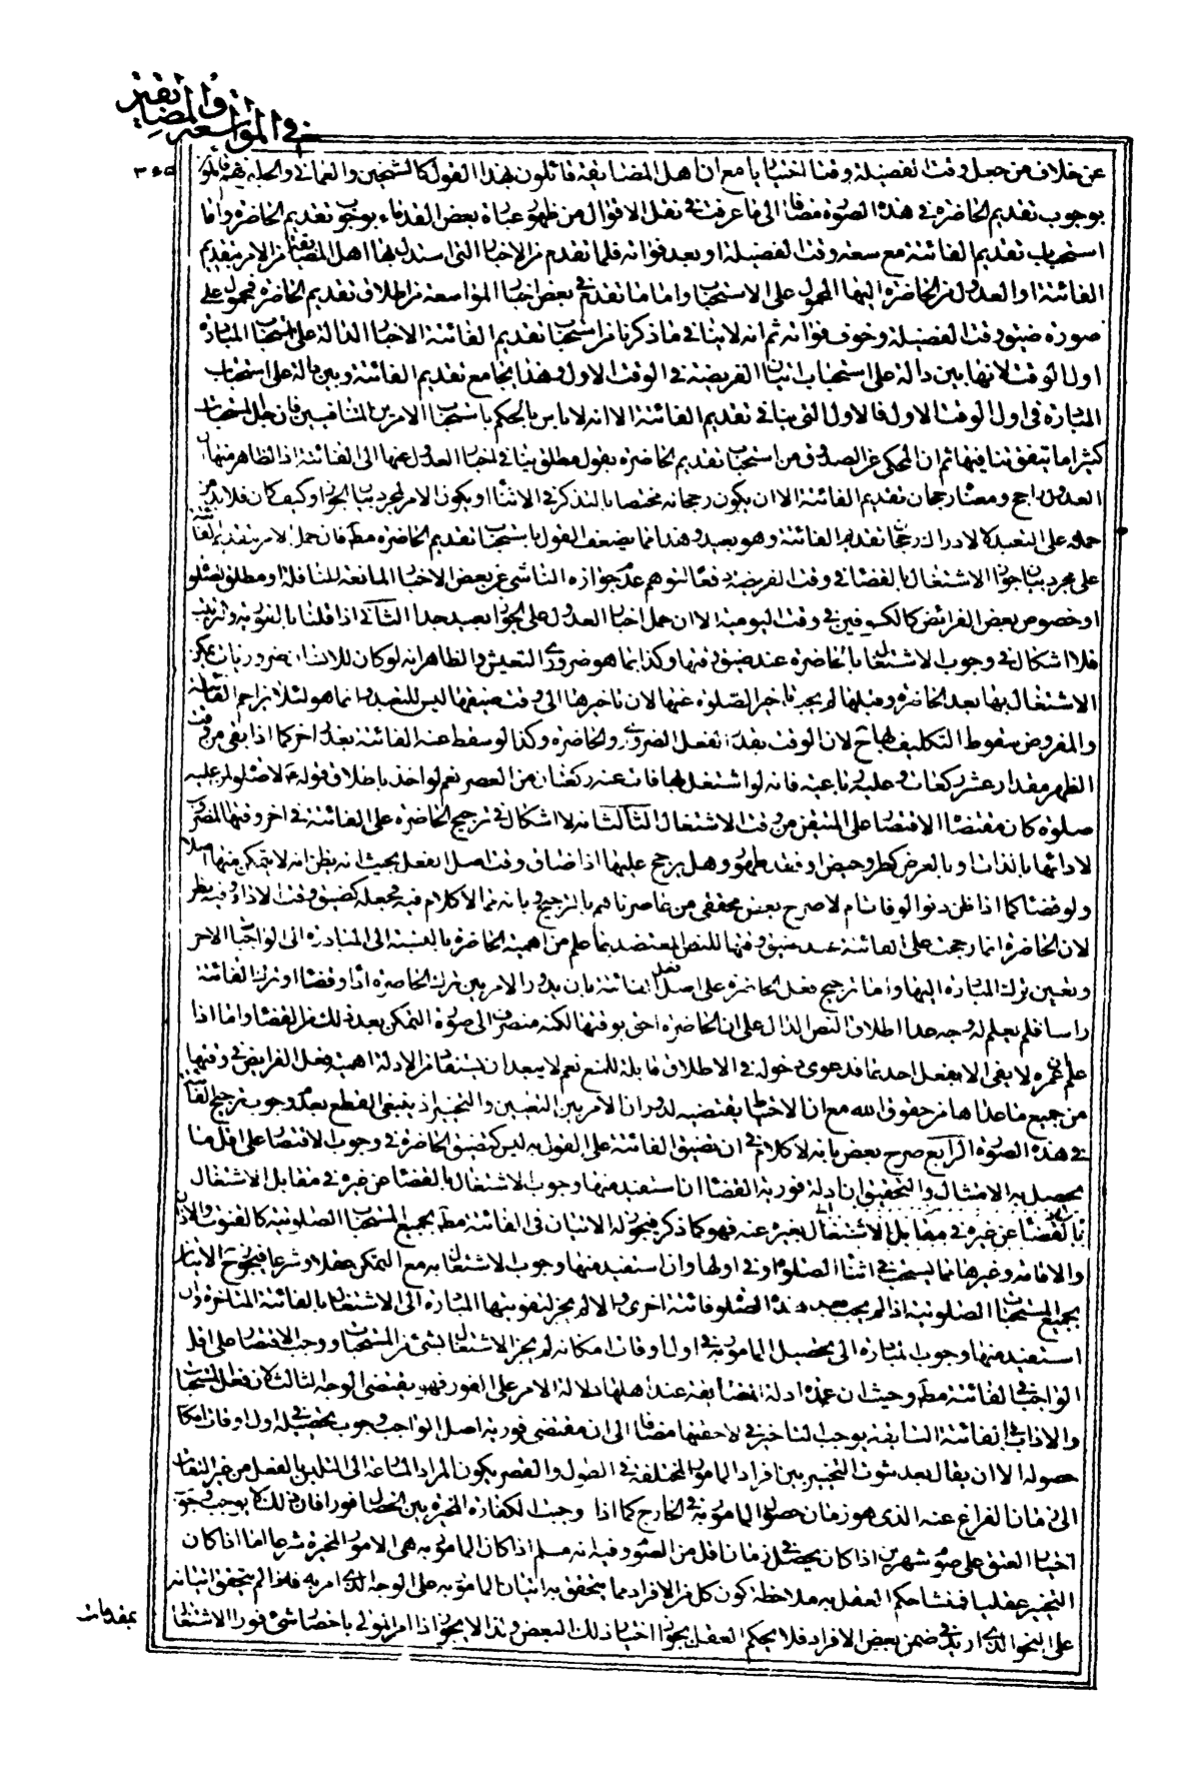 في المواسعة والمضايقة
٣٦٥
عن خلاف من جعل وقت الفضيلة وقتا اختياريا مع ان اهل المضايقة قائلون بهذا القول كالشيخين والعماني والحلبي فهم قائلون
بوجوب تقديم الحاضرة في هذه الصورة مضافا الى ما عرفت في نقل الاقوال من ظهور عبارة بعض القدماء بوجوب تقديم الحاضرة واما
استحباب تقديم الفائتة مع سعة وقت الفضيلة او بعد فواته فلما تقدم من الاخبار التى استدل بها اهل المضايقة من الامر بتقديم
الفائتة او العدول من الحاضرة اليها المحمول على الاستحباب واما ما تقدم في بعض اخبار المواسعة من اطلاق تقديم الحاضرة فمحمول على
صورة ضيق وقت الفضيلة وخوف فواته ثم انه لا ينافي ما ذكرنا من استحباب تقديم الفائتة الاخبار الدالة على استحباب المبادرة
اول الوقت لانها بين دالة على استحباب اتيان الفريضة في الوقت الاول وهذا يجامع تقديم الفائتة وبين دالة على استحباب
المبادرة في اول الوقت الاول فالاول التى ينافي تقديم الفائتة الا انه لا باس بالحكم باستحباب الامرين المتنافيين فان جل المستحبات
كثيرا ما يتفق تنافيها ثم ان المحكى عن الصدوق من استحباب تقديم الحاضرة بقول مطلق ينافي اخبار العدول عنها الى الفائتة اذ الظاهر منها ان
العدول راجح ومعناه رجحان تقديم الفائتة الا ان يكون رجحانه مختصا بالتذكر في الاثناء او يكون الامر لمجرد بيان الجواز وكيف كان فلا بد من
حمله على التعبد لا لادراك رجحان تقديم الفائتة وهو بعيد وهذا مما يضعف القول باستحباب تقديم الحاضرة مط فان حمل الامر بتقديم الفائتة
على مجرد بيان جواز الاشتغال بالقضاء في وقت الفريضة دفعا لتوهم عدم جوازه الناشي عن بعض الاخبار المانعة للنافلة او مطلق الصلوة
او خصوص بعض الفرائض كالكسوفين في وقت اليومية الا ان حمل اخبار العدول على الجواز بعيد جدا الثاني اذا قلنا بالفورية والترتيب
فلا اشكال في وجوب الاشتغال بالحاضرة عند ضيق وقتها وكذا بما هو ضروري التعيش والظاهر انه لو كان للانسان ضروريات يمكن
الاشتغال بها بعد الحاضرة وقبلها لم يجب تاخير الصلوة عنها لان تاخيرها الى وقت ضيقها ليس للتعبد وانما هو لئلا يزاحم الفائتة
والمفروض سقوط التكليف بها ح لان الوقت بقدر تفعل الضروري والحاضرة وكذا لو سقط عنه الفائتة بعذر اخر كما اذا بقي من وقت
الظهر مقدار عشر ركعات وعليه رباعية فانه لو اشتغل بها فات عنه ركعتان من العصر نعم لو اخذ باطلاق قوله ع لا صلوة لمن عليه
صلوة كان مقتضاه الاقتصار على المتيقن من وقت الاشتغال الثالث انه لا اشكال في ترجيح الحاضرة على الفائتة في اخر وقتها المضروب
لادائها بالذات او بالعرض كطرو حيض او فقد طهور وهل يرجح عليها اذا ضاق وقت اصل الفعل بحيث انه يظن انه لا يتمكن منها اصلا
ولو قضاء كما اذا ظن دنو الوفات ام لا صرح بعض محققي من عاصرناهم بالترجيح وبانه مما لا كلام فيه فجعله كضيق وقت الاداء وفيه نظر
لان الحاضرة انما رجحت على الفائتة عند ضيق وقتها للنص المعتضد بما علم من اهمية الحاضرة بالنسبة الى المبادرة الى الواجب الاخر
وتعين ترك المبادرة اليها واما ترجيح فعل الحاضرة على اصل فعل الفائتة بان يدور الامر بين ترك الحاضرة اداء وقضاء او ترك الفائتة
راسا فلم يعلم له وجه عدا اطلاق النص الدال على ان الحاضرة احق بوقتها لكنه منصرف الى صورة التمكن بعد ذلك من القضاء واما اذا
علم ان عمره لا يفي الا بفعل احدهما فدعوى دخوله في الاطلاق قابلة للمنع نعم لا يبعد ان يستفاد من الادلة اهمية فعل الفرايض في وقتها
من جميع ما عداها من حقوق الله مع ان الاحتياط يقتضيه لدوران الامر بين التعيين والتخيير اذ ينبغي القطع بعدم وجوب ترجيح الفائتة
في هذه الصورة الرابع صرح بعض بانه لا كلام في ان تضيق الفائتة على القول به ليس كتضيق الحاضرة في وجوب الاقتصار على اقل ما
يحصل به الامتثال والتحقيق ان ادلة فورية القضاء ان استفيد منها وجوب الاشتغال بالقضاء عن غيره في مقابل الاشتغال
بالقضاء عن غيره في مقابل الاشتغال بغيره عنه فهو كما ذكر فيجوز له الاتيان في الفائتة مط بجميع المستحبات الصلوتية كالقنوت والاذان
والاقامة وغيرها مما يستحب في اثناء الصلوة او في اولها وان استفيد منها وجوب الاشتغال به مع التمكن عقلا وشرعا فيجوز ح الاتيان
بجميع المستحبات الصلوتية اذا لم يجب بعد هذه الصلوة فائتة اخرى والا لم يجز لتفويتها المبادرة الى الاشتغال بالفائتة المتاخرة وان
استفيد منها وجوب المبادرة الى تحصيل المامور به في اول اوقات امكانه لم يجز الاشتغال بشئ من المستحبات ووجب الاقتصار على اقل
الواجب في الفائتة مط وحيث ان عمدة ادلة المضايقة عند اهلها دلالة الامر على الفور فهي يقتضى الوجه الثالث كان فعل المستحبات
والاداب في الفائتة السابقة يوجب التاخير في لاحقتها مضافا الى ان مقتضى فورية اصل الواجب وجوب تحصيله في اول اوقات امكان
حصوله الا ان يقال بعد ثبوت التخيير بين افراد المامور المختلفة في الطول والقصر يكون المراد المسارعة الى التلبس بالفعل من غير التفات
الى زمان الفراغ عنه الذى هو زمان حصول المامور به في الخارج كما اذا وجبت الكفارة المخيرة بين الخصال فورا فان ذلك لا يوجب وجوب
اختيار العتق على صوم شهرين اذا كان يحصل في زمان اقل من الصوم وفيه انه مسلم اذا كان المامور به هي الامور المخيرة شرعا اما اذا كان
التخيير عقليا فمنشا حكم العقل به ملاحظة كون كل من الافراد مما يتحقق به اتيان المامور به على الوجه الذي امر به فاذا لم يتحقق اتيانه
على النحو الذي اريد في ضمن بعض الافراد فلا يحكم العقل بجواز اختيار ذلك البعض ولذا لا يجوز اذا امر المولى باحضار شئ فورا الاشتغال
بمقدمات